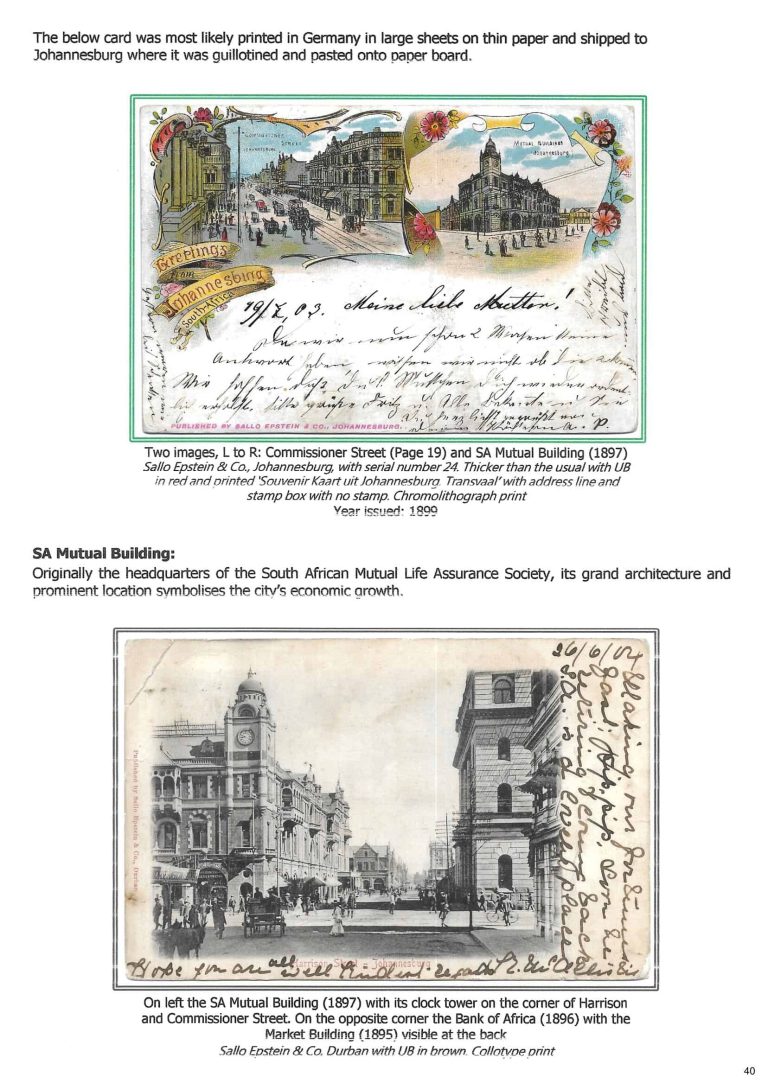 The below card was most likely printed in Germany in large sheets on thin paper and shipped to
Johannesburg where it was guillotined and pasted onto paper board.
Commissioner
Street
Johannesburg.
Mutual Buildings
Johannesburg
Greetings
from
Johannesburg
South-Africa
19/7.03. Meine liebe Mutter!
Da wir nun schon 2 Wochen keine
Antwort haben, wissen wir nicht ob
Wir hoffen daß
PUBLISHED BY SALLO EPSTEIN & CO., JOHANNESBURG.
Two images, L to R: Commissioner Street (Page 19) and SA Mutual Building (1897)
Sallo Epstein & Co., Johannesburg, with serial number 24. Thicker than the usual with UB
in red and printed 'Souvenir Kaart uit Johannesburg. Transvaal' with address line and
stamp box with no stamp. Chromolithograph print
Year issued: 1899
SA Mutual Building:
Originally the headquarters of the South African Mutual Life Assurance Society, its grand architecture and
prominent location symbolises the city's economic growth.
Published by Sallo Epstein & Co., Durban
26/6/04
Making our fortunes
S.A. is a lovely place
Harrison Street – Johannesburg
Hope you are all well Kindest
On left the SA Mutual Building (1897) with its clock tower on the corner of Harrison
and Commissioner Street. On the opposite corner the Bank of Africa (1896) with the
Market Building (1895) visible at the back
Sallo Epstein & Co. Durban with UB in brown. Collotype print
40